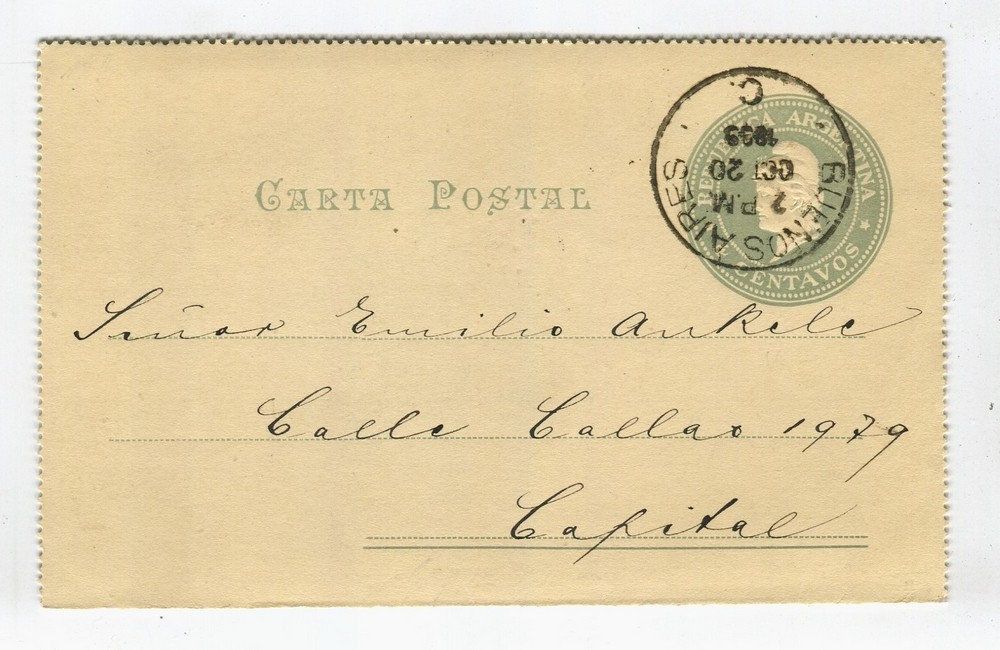 REPUBLICA ARGENTINA
CENTAVOS
BUENOS AIRES
C.
OCT 20
2 P.M
CARTA POSTAL
Señor Emilio Ankele
Calle Callao 1979
Capital